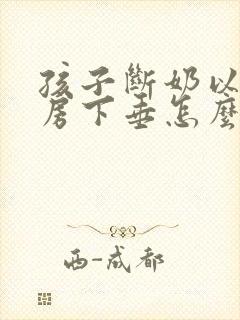 孩子斷奶以
房下垂怎麼
西-成都